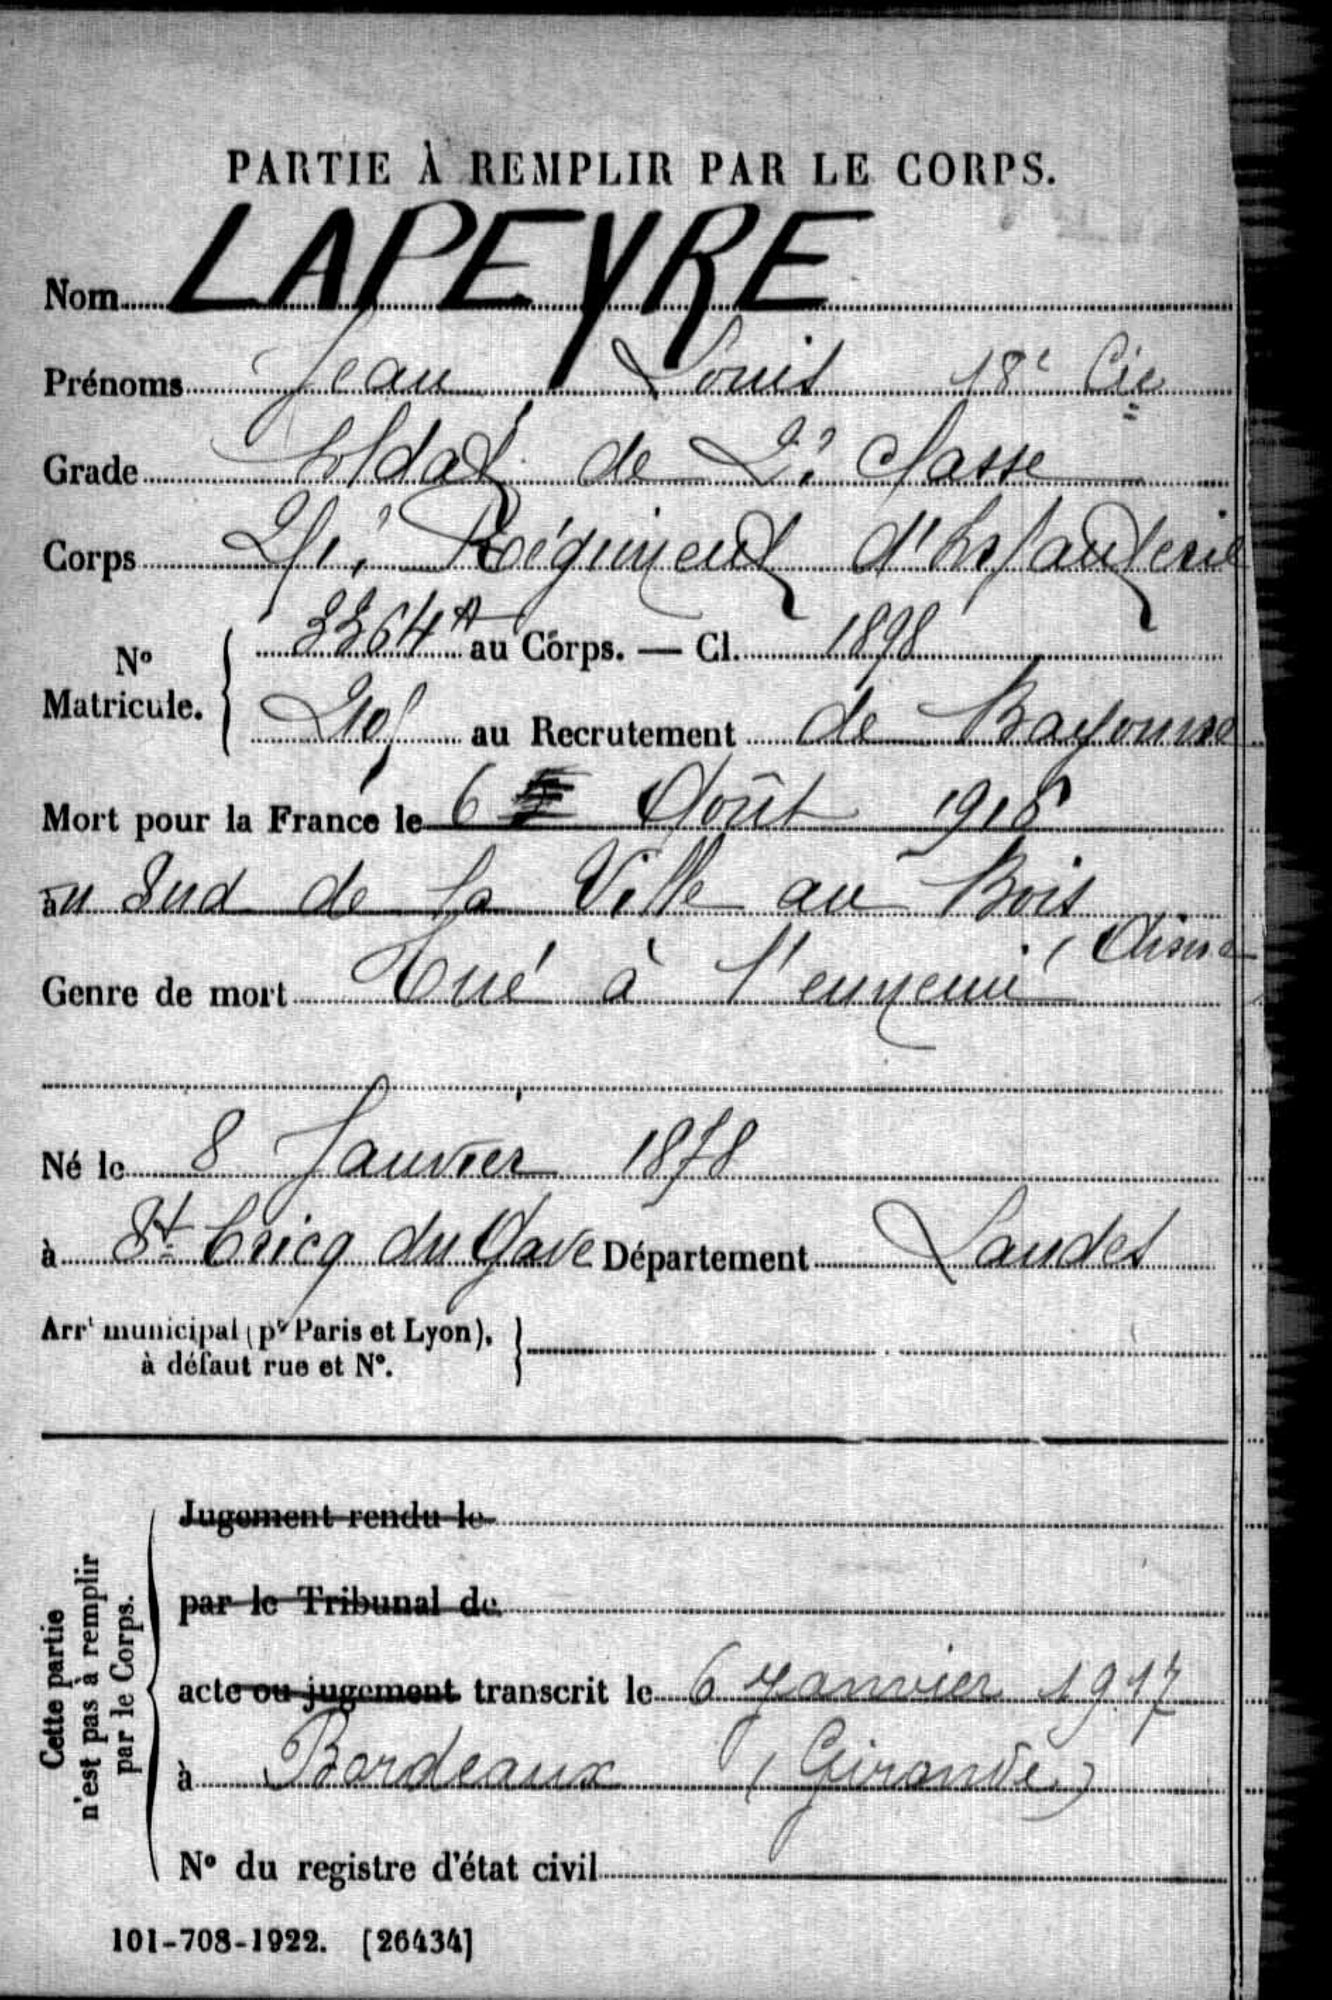 PARTIE À REMPLIR PAR LE CORPS.
Nom LAPEYRE
Prénoms Jean Louis 18e Cie
Grade Soldat de 2e classe
Corps Régiment d'Infanterie
No Matricule. { au Corps. — Cl. 1898
au Recrutement de Bayonne
Mort pour la France le 6 Août
au Sud de la Ville au Bois
(Aisne
Genre de mort Tué à l'ennemi
Né le 8 Janvier 1878
à St Cricq du Gave Département Landes
Arrt municipal (pr Paris et Lyon), }
à défaut rue et No.
Cette partie n'est pas à remplir par le Corps.
Jugement rendu le
par le Tribunal de
acte ou jugement transcrit le 6 Janvier 1917
à Bordeaux (Gironde)
No du registre d'état civil
101-708-1922. [26434]